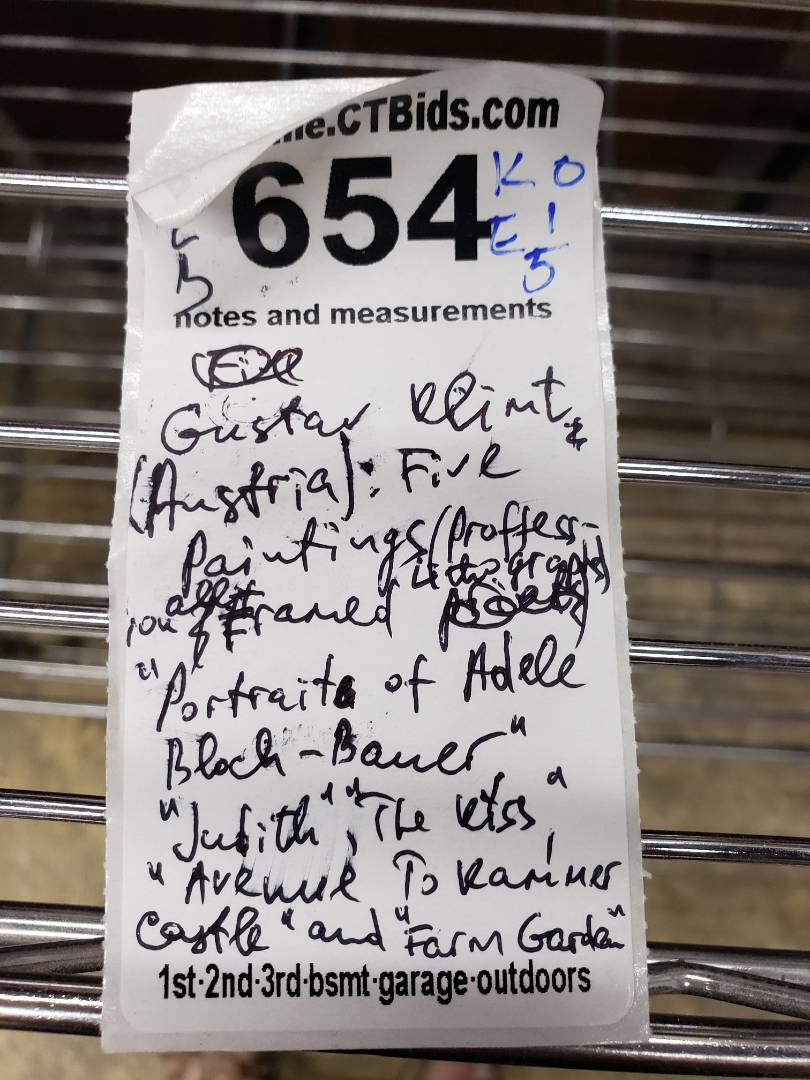 .CTBids.com
654 K O
E 1
5
notes and measurements
Gustav Klimt
(Austria): Five
Paintings (Proffess-
Lithographs)
Framed
"Portraits of Adele
Bloch-Bauer"
"Judith", "The Kiss"
"Avenue To Kammer
Castle" and "Farm Garden"
1st·2nd·3rd·bsmt·garage·outdoors